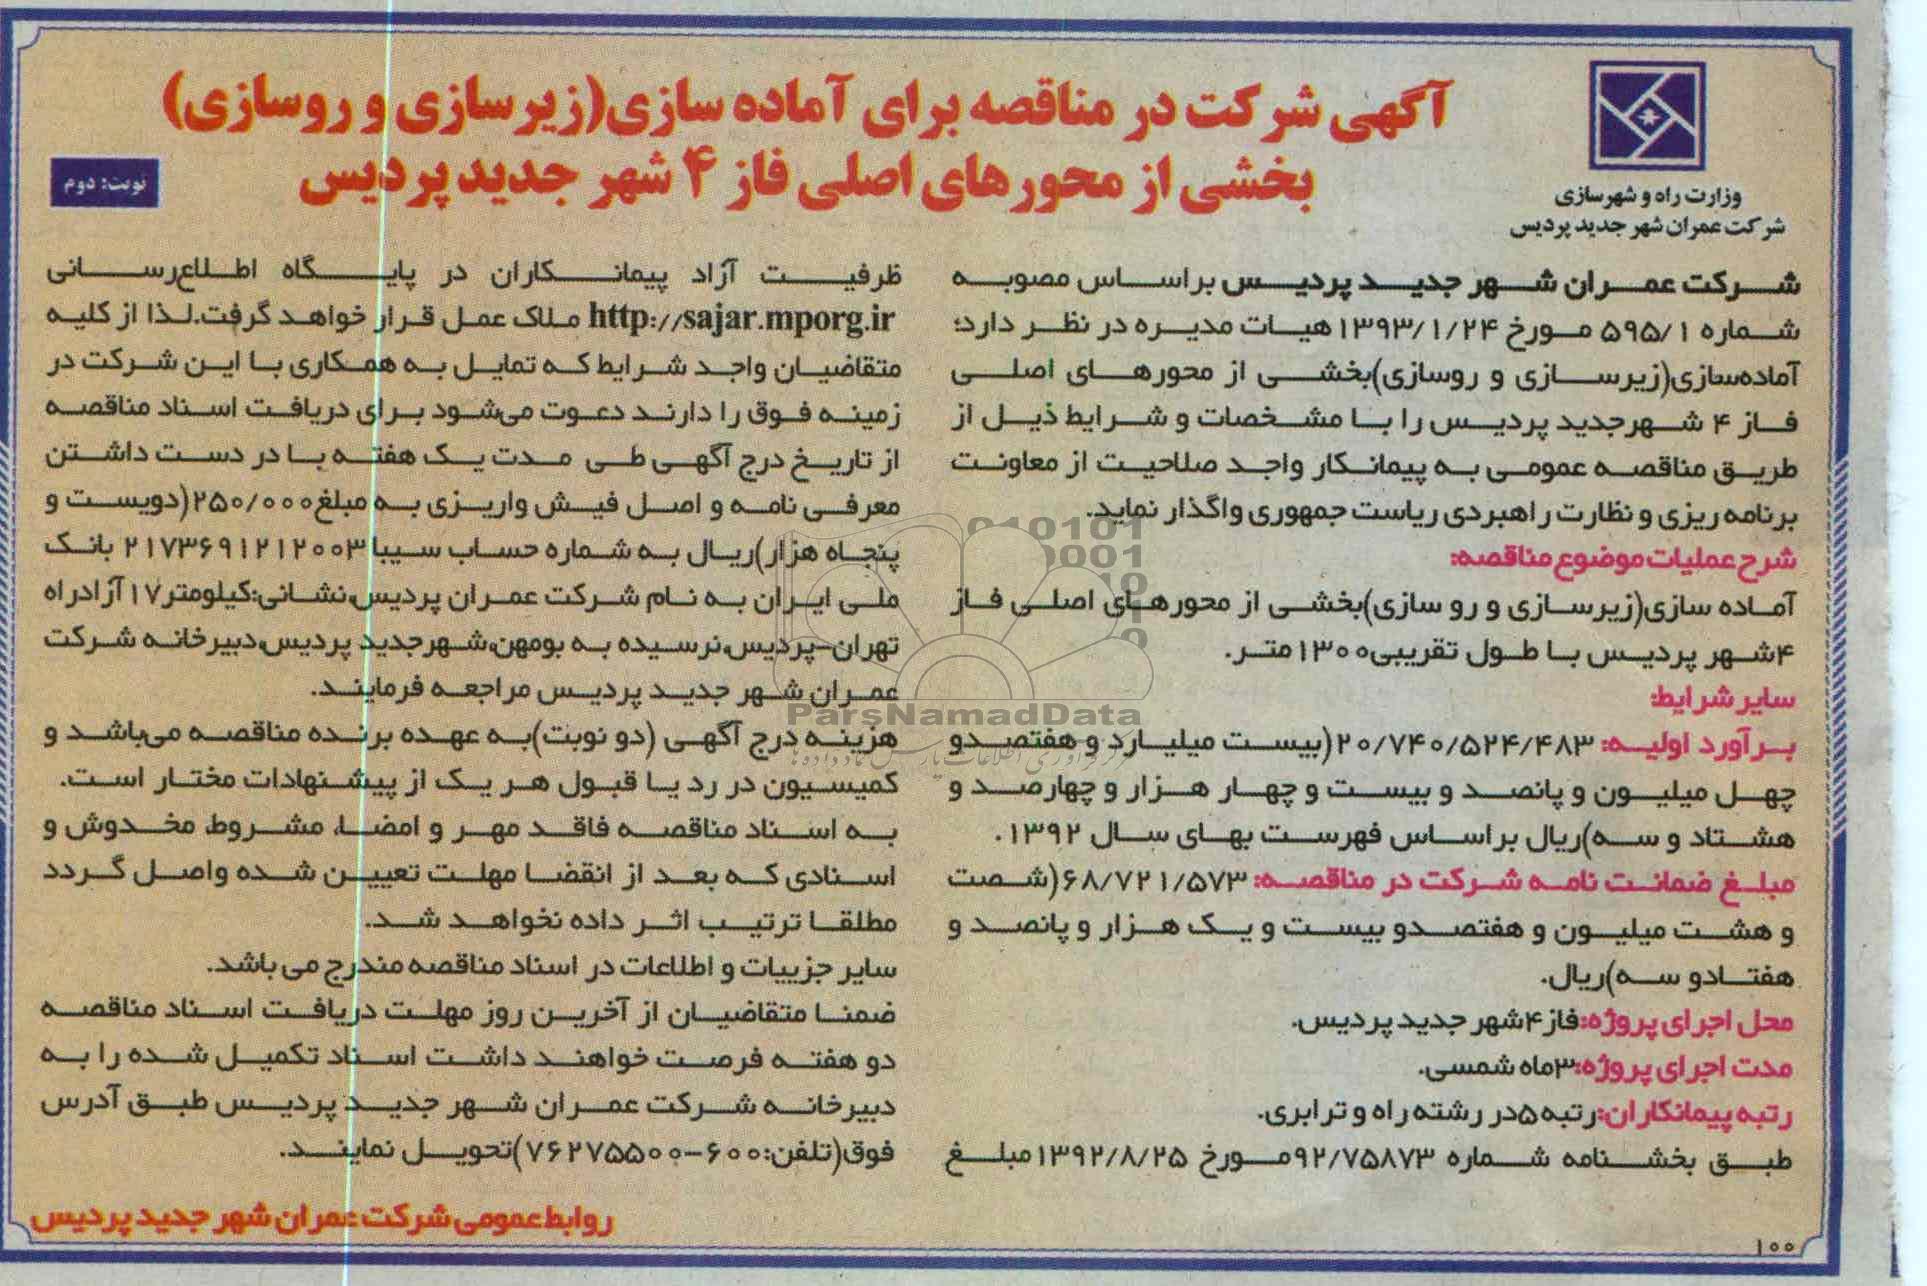 آگهی شرکت در مناقصه برای آماده سازی(زیرسازی و روسازی)
بخشی از محورهای اصلی فاز ۴ شهر جدید پردیس
نوبت: دوم
وزارت راه و شهرسازی
شرکت عمران شهر جدید پردیس
شرکت عمران شهر جدید پردیس براساس مصوبه
شماره ۵۹۵/۱ مورخ ۱۳۹۳/۱/۲۴هیات مدیره در نظر دارد؛
آماده‌سازی(زیرسازی و روسازی)بخشی از محورهای اصلی
فاز ۴ شهرجدید پردیس را با مشخصات و شرایط ذیل از
طریق مناقصه عمومی به پیمانکار واجد صلاحیت از معاونت
برنامه ریزی و نظارت راهبردی ریاست جمهوری واگذار نماید.
شرح عملیات موضوع مناقصه:
آماده سازی(زیرسازی و رو سازی)بخشی از محورهای اصلی فاز
۴شهر پردیس با طول تقریبی۱۳۰۰متر.
سایر شرایط:
برآورد اولیه: ۲۰/۷۴۰/۵۲۴/۴۸۳(بیست میلیارد و هفتصدو
چهل میلیون و پانصد و بیست و چهار هزار و چهارصد و
هشتاد و سه)ریال براساس فهرست بهای سال ۱۳۹۲.
مبلغ ضمانت نامه شرکت در مناقصه: ۶۸/۷۲۱/۵۷۳(شصت
و هشت میلیون و هفتصدو بیست و یک هزار و پانصد و
هفتادو سه)ریال.
محل اجرای پروژه:فاز۴شهر جدید پردیس.
مدت اجرای پروژه:۳ماه شمسی.
رتبه پیمانکاران:رتبه۵در رشته راه و ترابری.
طبق بخشنامه شماره ۹۲/۷۵۸۷۳مورخ ۱۳۹۲/۸/۲۵مبلغ
ظرفیت آزاد پیمانکاران در پایگاه اطلاع‌رسانی
http://sajar.mporg.ir ملاک عمل قرار خواهد گرفت.لذا از کلیه
متقاضیان واجد شرایط که تمایل به همکاری با این شرکت در
زمینه فوق را دارند دعوت می‌شود برای دریافت اسناد مناقصه
از تاریخ درج آگهی طی مدت یک هفته با در دست داشتن
معرفی نامه و اصل فیش واریزی به مبلغ۲۵۰/۰۰۰(دویست و
پنجاه هزار)ریال به شماره حساب سیبا ۲۱۷۳۶۹۱۲۱۲۰۰۳ بانک
ملی ایران به نام شرکت عمران پردیس،نشانی:کیلومتر۱۷آزادراه
تهران-پردیس،نرسیده به بومهن،شهرجدید پردیس،دبیرخانه شرکت
عمران شهر جدید پردیس مراجعه فرمایند.
هزینه درج آگهی (دو نوبت)به عهده برنده مناقصه می‌باشد و
کمیسیون در رد یا قبول هر یک از پیشنهادات مختار است.
به اسناد مناقصه فاقد مهر و امضا، مشروط، مخدوش و
اسنادی که بعد از انقضا مهلت تعیین شده واصل گردد
مطلقا ترتیب اثر داده نخواهد شد.
سایر جزییات و اطلاعات در اسناد مناقصه مندرج می باشد.
ضمنا متقاضیان از آخرین روز مهلت دریافت اسناد مناقصه
دو هفته فرصت خواهند داشت اسناد تکمیل شده را به
دبیرخانه شرکت عمران شهر جدید پردیس طبق آدرس
فوق(تلفن:۶۰۰-۷۶۲۷۵۵۰۰)تحویل نمایند.
روابط عمومی شرکت عمران شهر جدید پردیس
۱۰۰
ParsNamadData